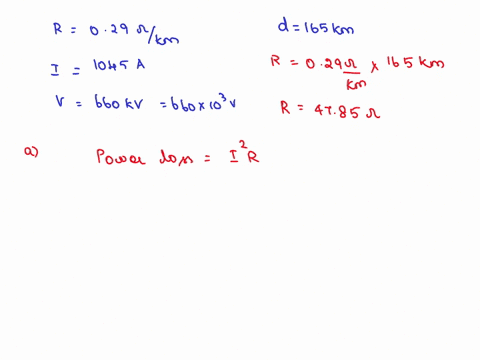 R = 0.29 Ω/km
I = 1045 A
V = 660 kV = 660 × 10³ V
d = 165 km
R = 0.29 Ω/km × 165 km
R = 47.85 Ω
a) Power loss = I²R